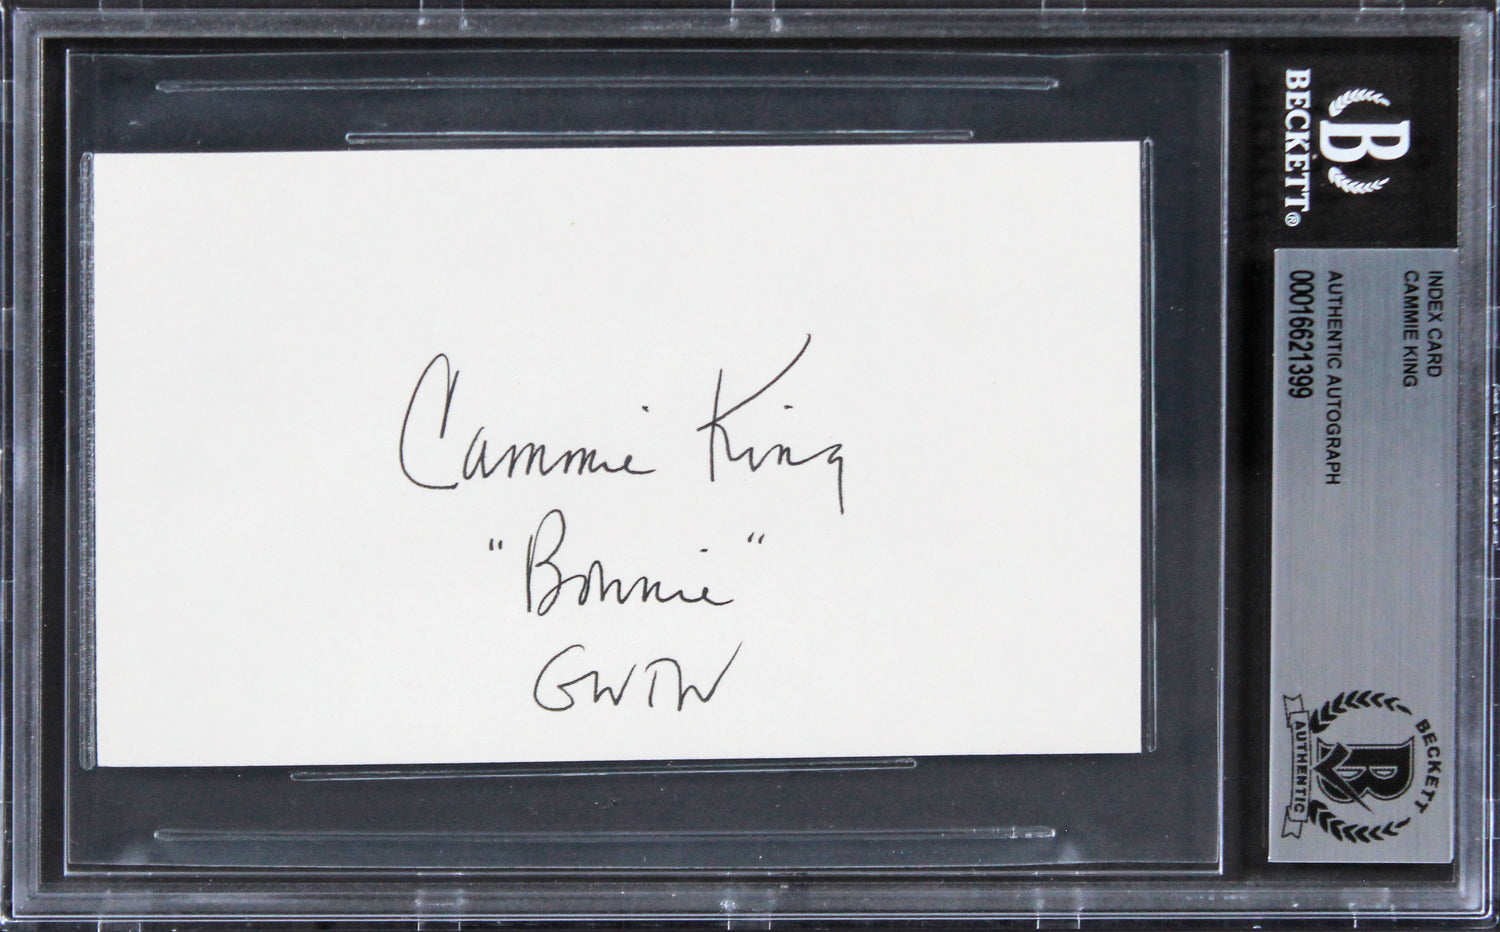 Cammie King
"Bonnie"
GWTW
BECKETT®
INDEX CARD
CAMMIE KING
AUTHENTIC AUTOGRAPH
00016621399
B
BECKETT
AUTHENTIC